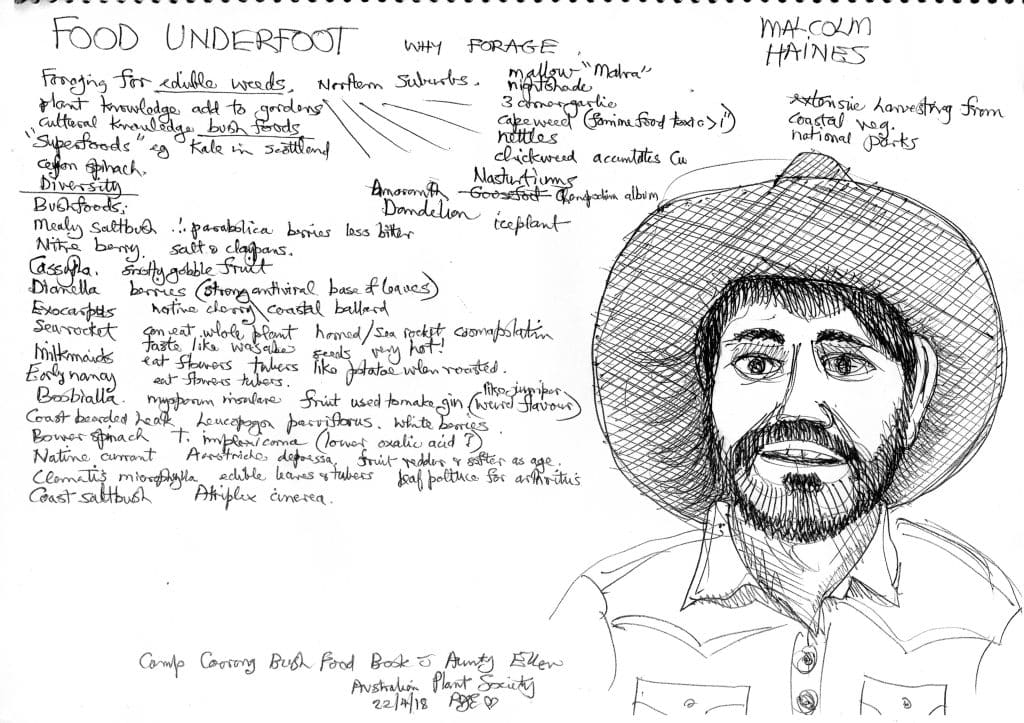 FOOD UNDERFOOT
WHY FORAGE.
MALCOLM
HAINES
Foraging for edible weeds. Northern Suburbs.
plant knowledge add to gardens
cultural knowledge bush foods
"Superfoods" eg Kale in Scottland
ceylon spinach.
Diversity
mallow "Malva"
nightshade
3 corner garlic
capeweed (famine food toxic > 1")
nettles
chickweed accumtates Cu
Nasturtiums
Amaranth Goosefoot Chenopodium album
Dandelion iceplant
extensie harvesting from
coastal veg.
national parks
Bushfoods:
Mealy saltbush ∴ parabolica berries less bitter
Nitre berry. salt & claypans.
Cassytha. snottygobble fruit
Dianella berries (strong antiviral base of leaves)
Exocarpus native cherry coastal ballard
Searocket can eat whole plant horned/sea rocket
taste like wasabe seeds very hot!
Milkmaids eat flowers tubers like potatoe when roasted.
Early nancy eat flowers tubers.
Boobialla myoporum insulare fruit used to make gin (like juniper weird flavour)
Coast bearded heath Leucopogon parviflorus. white berries
Bower spinach T. implexicoma (lower oxalic acid?)
Native currant depressa, fruit redder & softer as age.
Clematis microphylla edible leaves & tubers leaf poltuce for arthritus
Coast saltbush Atriplex cinerea.
Camp Coorong Bush Food Book Aunty Ellen
Australian Plant Society
22/4/18